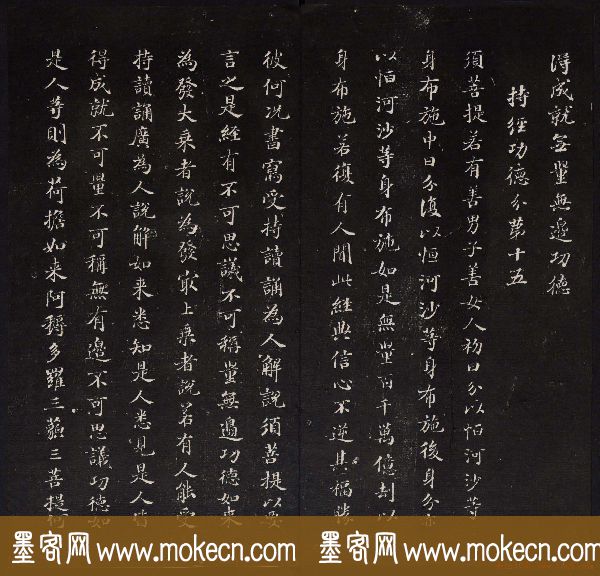 得成就无量無邊功德
持經功德分第十五
須菩提若有善男子善女人初日分以恒河沙等
身布施中日分復以恒河沙等身布施後身分亦
以恒河沙等身布施如是無量百千萬億劫以
身布施若復有人聞此經典信心不逆其福勝
彼何況書寫受持讀誦為人解說須菩提以要
言之是經有不可思議不可稱量無邊功德如來
為發大乘者說為發最上乘者說若有人能受
持讀誦廣為人說解如來悉知是人悉見是人皆
得成就不可量不可稱無有邊不可思議功德如
是人等則為荷擔如來阿耨多羅三藐三菩提何
墨客网 www.mokecn.com 墨客网 www.mokecn.com